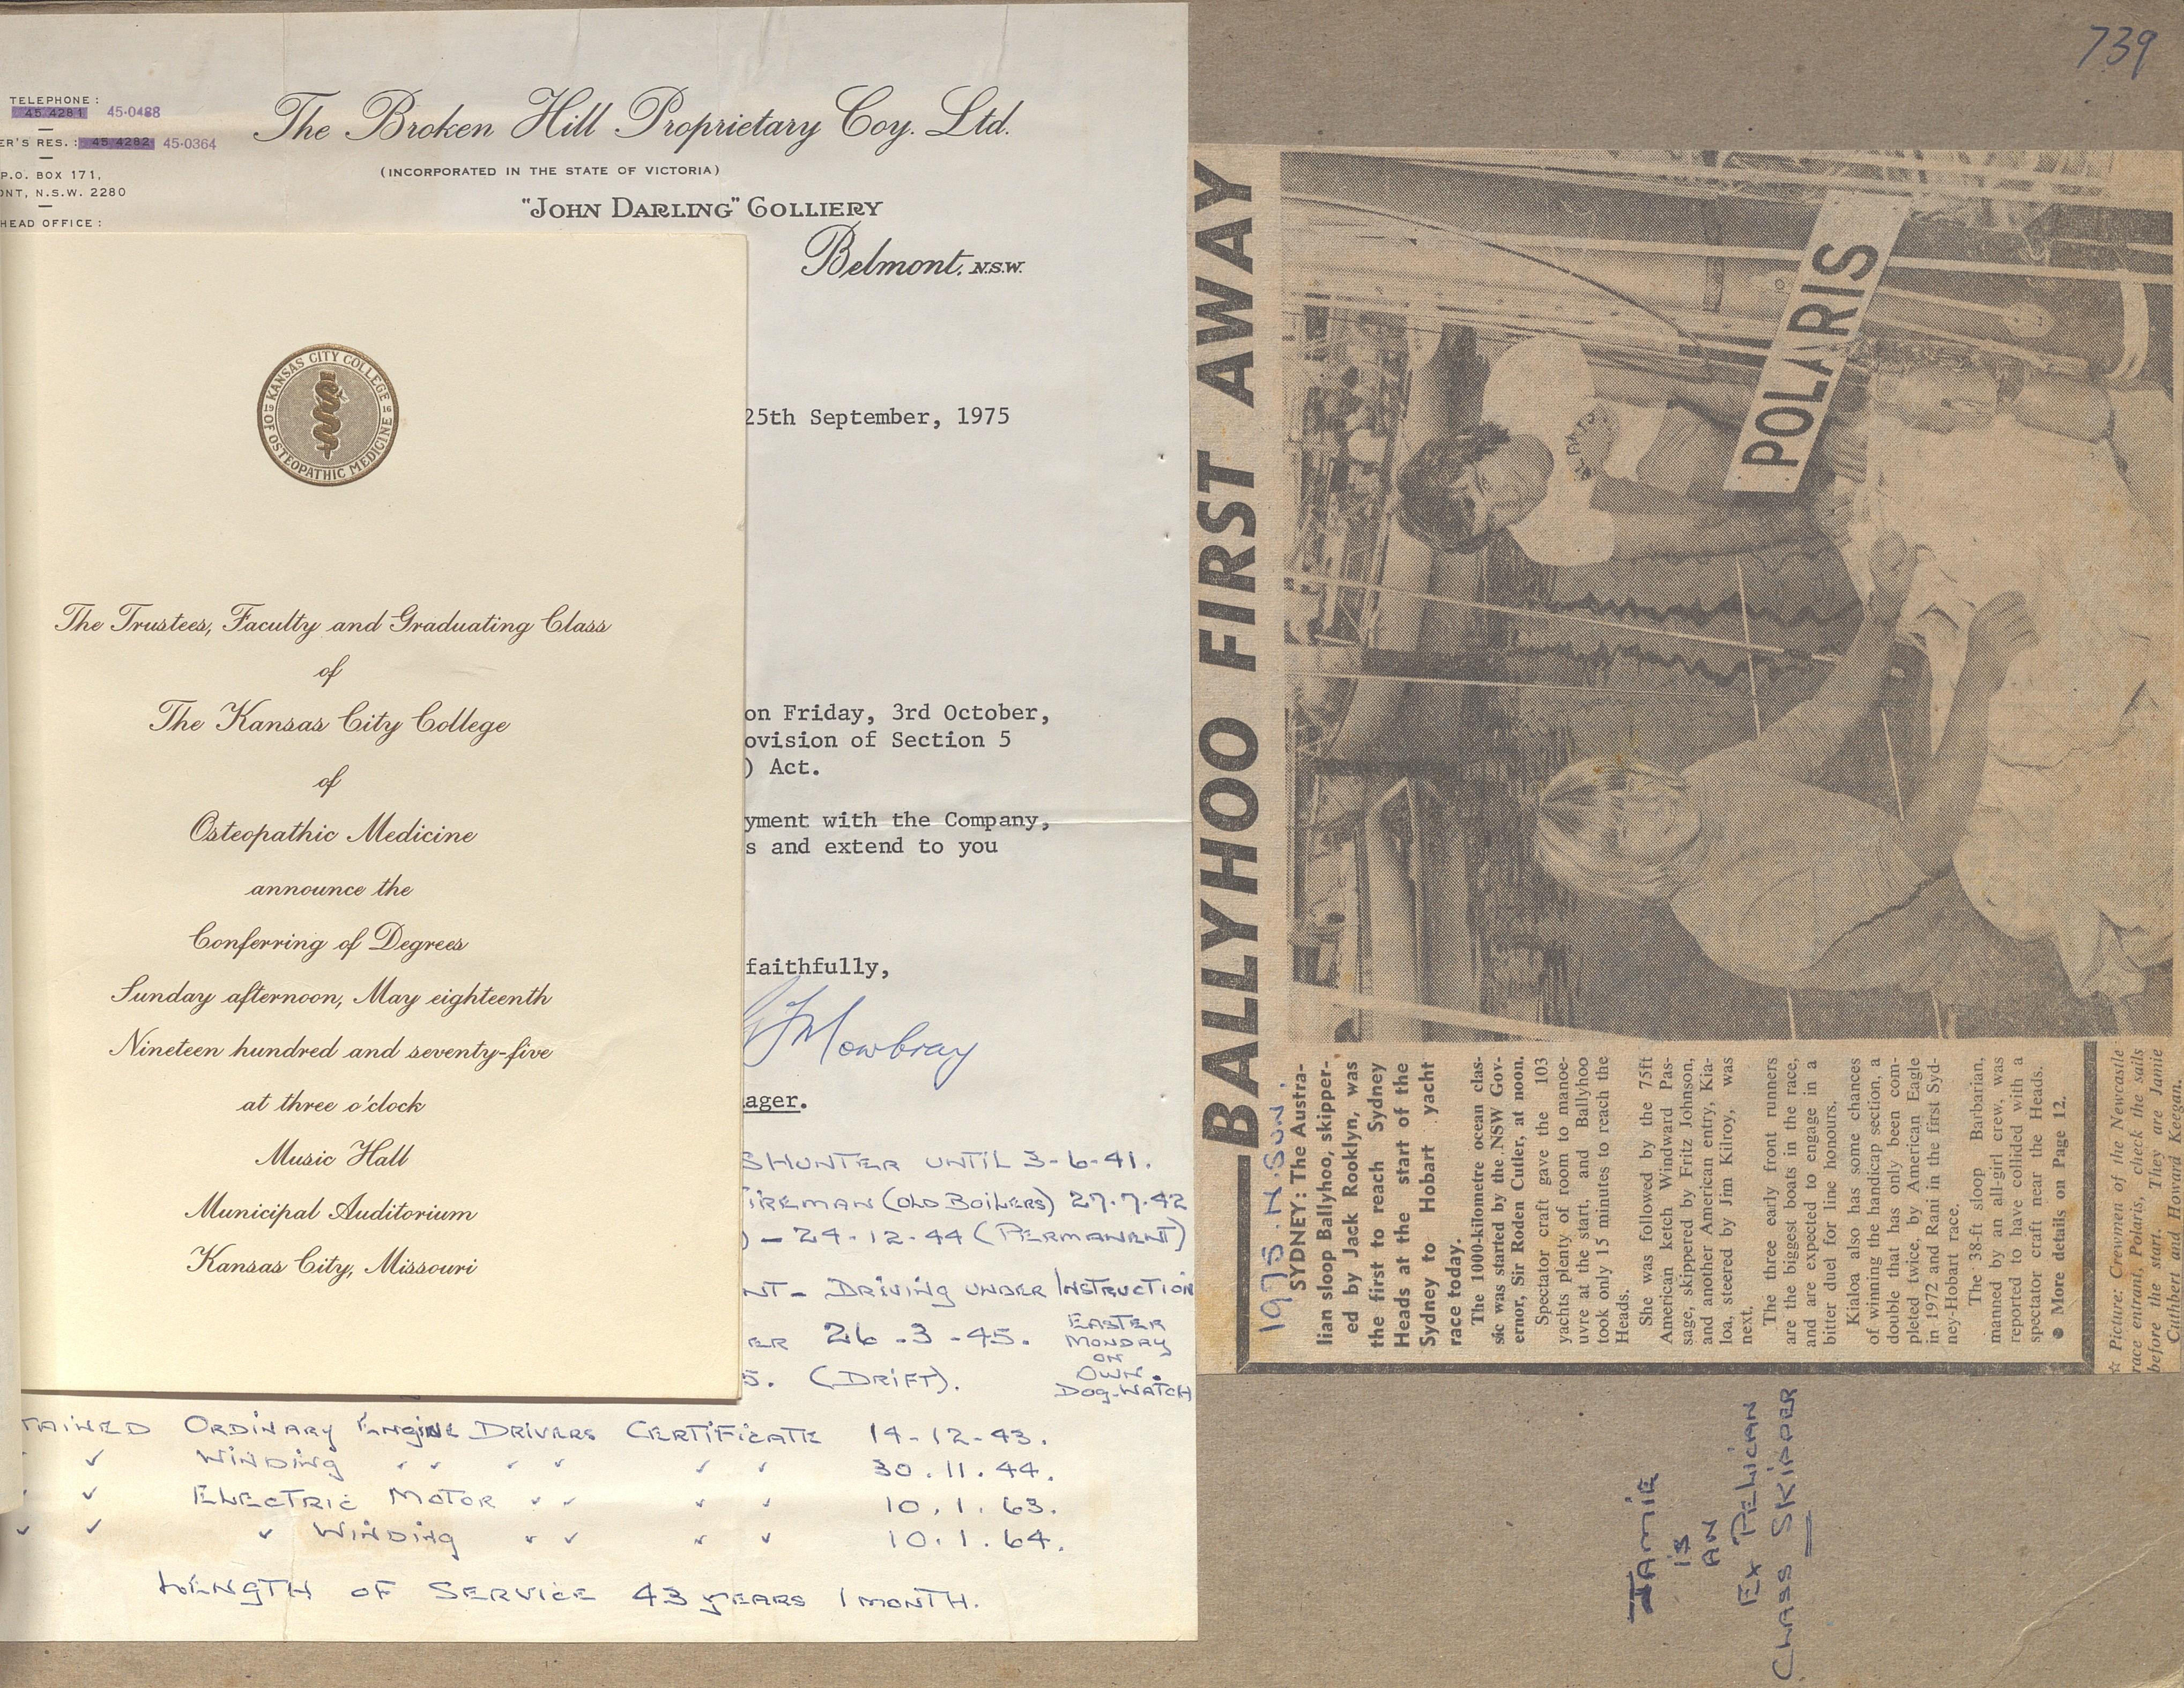 TELEPHONE:
45.4281 45-0488
ER'S RES.: 45.4282 45-0364
P.O. BOX 171,
ONT, N.S.W. 2280
HEAD OFFICE:
The Broken Hill Proprietary Coy. Ltd.
(INCORPORATED IN THE STATE OF VICTORIA)
"JOHN DARLING" COLLIERY
Belmont, N.S.W.
25th September, 1975
on Friday, 3rd October,
ovision of Section 5
) Act.
yment with the Company,
s and extend to you
faithfully,
Mowbray
ager.
SHUNTER UNTIL 3-6-41.
IREMAN (OLD BOILERS) 27.7.42
) - 24-12-44 (PERMANENT)
NT - DRIVING UNDER INSTRUCTION
ER 26-3-45. EASTER
MONDAY
ON
OWN.
DOG-WATCH
5. (DRIFT).
TAINED ORDINARY ENGINE DRIVERS CERTIFICATE 14-12-43.
✓ WINDING ✓ ✓ ✓ ✓ ✓ ✓ 30.11.44.
✓ ELECTRIC MOTOR ✓ ✓ ✓ ✓ 10.1.63.
✓ ✓ ✓ WINDING ✓ ✓ ✓ ✓ 10.1.64.
LENGTH OF SERVICE 43 YEARS 1 MONTH.
KANSAS CITY COLLEGE
OF OSTEOPATHIC MEDICINE
19 16
The Trustees, Faculty and Graduating Class
of
The Kansas City College
of
Osteopathic Medicine
announce the
Conferring of Degrees
Sunday afternoon, May eighteenth
Nineteen hundred and seventy-five
at three o'clock
Music Hall
Municipal Auditorium
Kansas City, Missouri
739
BALLYHOO FIRST AWAY
1975. N. SUN.
SYDNEY: The Austra-
lian sloop Ballyhoo, skipper-
ed by Jack Rooklyn, was
the first to reach Sydney
Heads at the start of the
Sydney to Hobart yacht
race today.
The 1000-kilometre ocean clas-
sic was started by the NSW Gov-
ernor, Sir Roden Cutler, at noon.
Spectator craft gave the 103
yachts plenty of room to manoe-
uvre at the start, and Ballyhoo
took only 15 minutes to reach the
Heads.
She was followed by the 75ft
American ketch Windward Pas-
sage, skippered by Fritz Johnson,
and another American entry, Kia-
loa, steered by Jim Kilroy, was
next.
The three early front runners
are the biggest boats in the race,
and are expected to engage in a
bitter duel for line honours.
Kialoa also has some chances
of winning the handicap section, a
double that has only been com-
pleted twice, by American Eagle
in 1972 and Rani in the first Syd-
ney-Hobart race.
The 38-ft sloop Barbarian,
manned by an all-girl crew, was
reported to have collided with a
spectator craft near the Heads.
● More details on Page 12.
☆ Picture: Crewmen of the Newcastle
race entrant, Polaris, check the sails
before the start. They are Jamie
Cuthbert and Howard Keegan.
POLARIS
JAMIE
IS
AN
EX PELICAN
CLASS SKIPPER